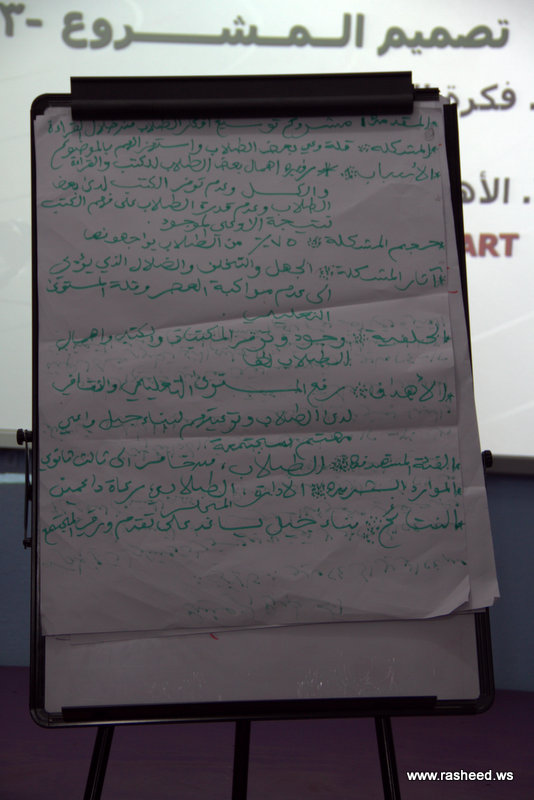 تصميم المشروع -٣
. فكرة
. الأه
ART
*المقدمة: مشروع توسيع أفكار الطلاب من خلال القراءة
*المشكلة: قلة وعي بعض الطلاب واستهزائهم بالموضوع
*الأسباب: اهمال بعض الطلاب للكتب والقراءة
والكسل وعدم توفر الكتب لدى بعض
الطلاب وعدم قدرة الطلاب على فهم الكتب
نتيجة الاوعي الموجود
*حجم المشكلة: ٧٥٪ من الطلاب يواجهونها
*آثار المشكلة: الجهل والتخلف والضلال الذي يؤدي
الى عدم مواكبة العصر وقلة المستوى
التعليمي
*الخلفية: وجود وتوفر المكتبات والكتب واهمال
الطلاب لها
*الأهداف: رفع المستوى التعليمي والثقافي
لدى الطلاب وتوعيتهم لبناء جيل واعي
مهتم بمجتمعه
*الفئة المستهدفة: الطلاب، من خامس الى ثالث ثانوي
*الموارد البشرية: الادارة، الطلاب،
*النتائج: بناء جيل يساعد على تقدم ورقي المجتمع
www.rasheed.ws